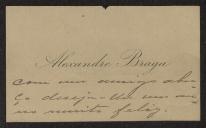 Alexandre Braga
com um amigo abra
ça deseja-lhe um an
no muito feliz.